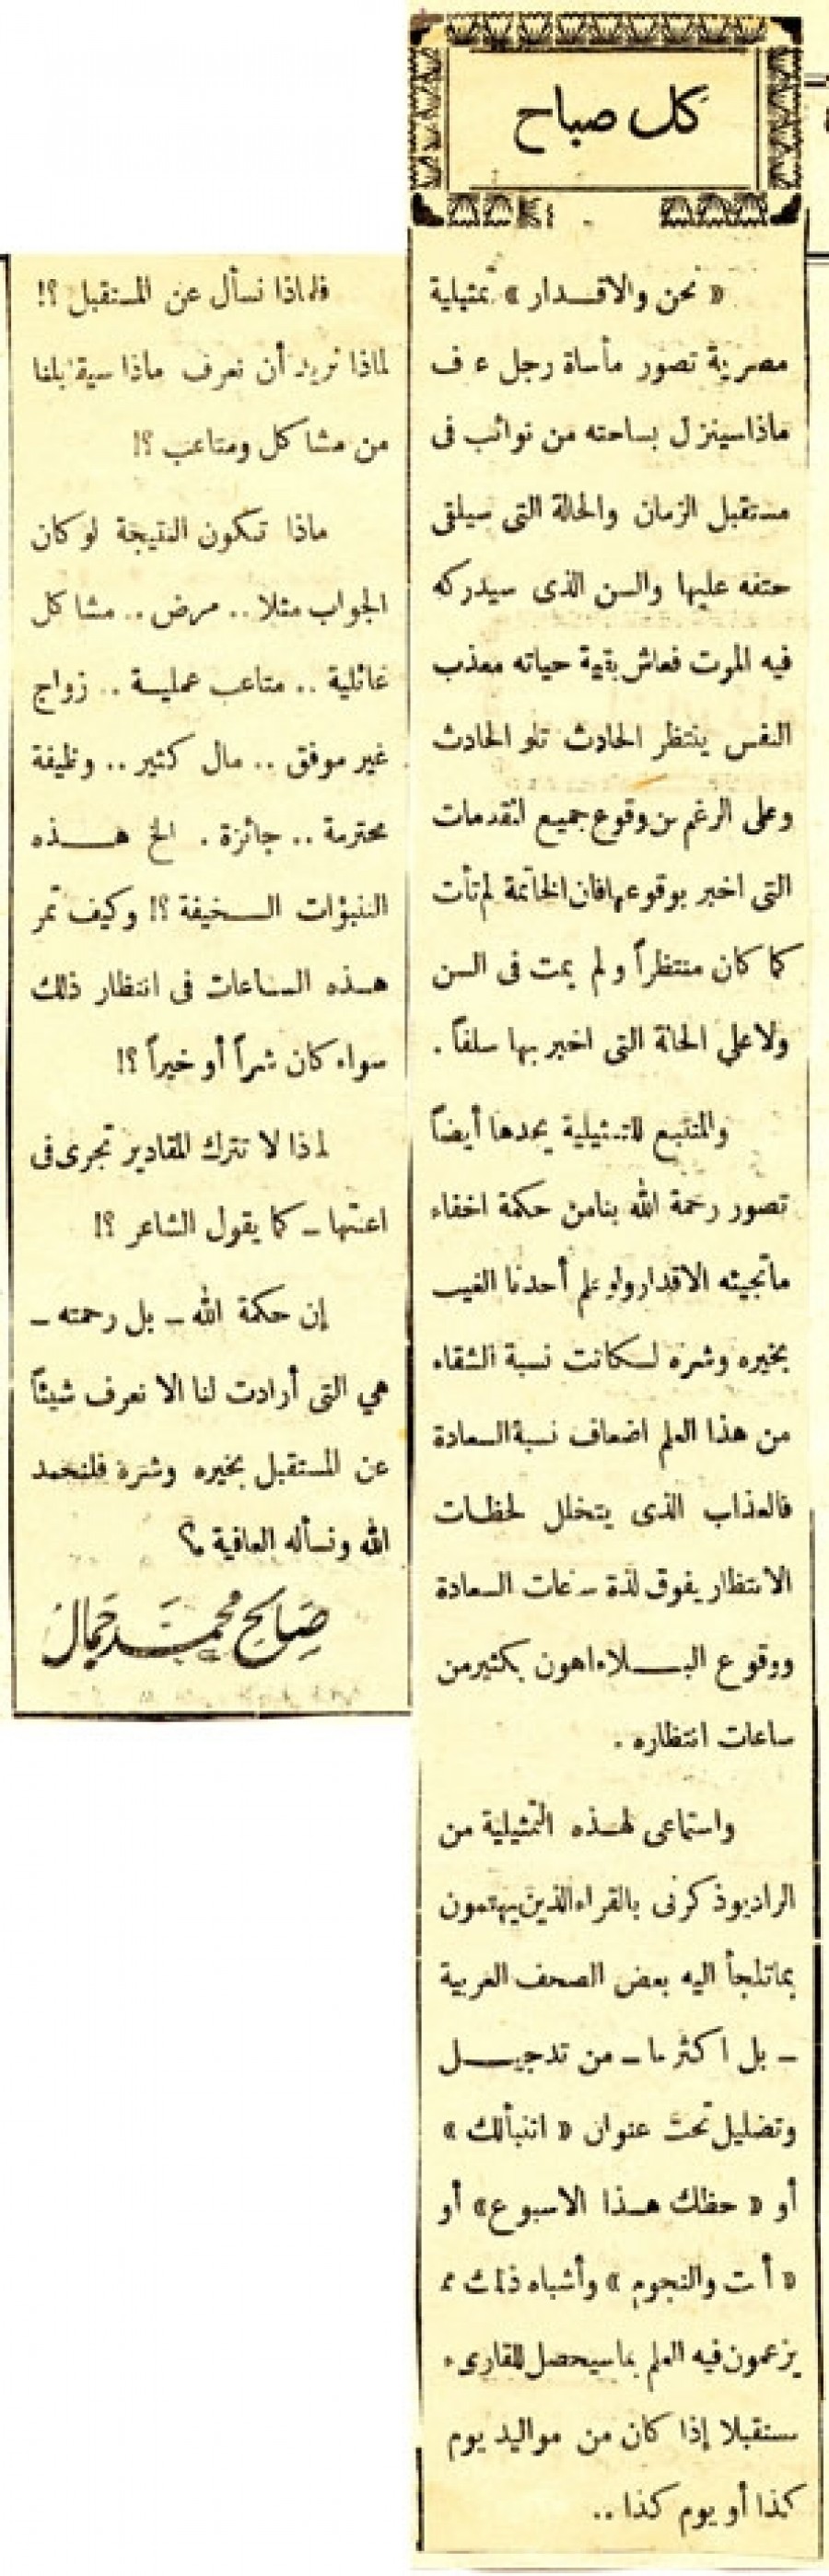 كل صباح
« نحن والاقدار » تمثيلية
مصرية تصور مأساة رجل عرف
ماذا سينزل بساحته من نوائب فى
مستقبل الزمان والحالة التى سيلقى
حتفه عليها والسن الذى سيدركه
فيه الموت فعاش بقية حياته معذب
النفس ينتظر الحادث تلو الحادث
وعلى الرغم من وقوع جميع المقدمات
التى اخبر بوقوعها فان الخاتمة لم تأت
كما كان منتظراً ولم يمت فى السن
ولا على الحالة التى اخبر بها سلفاً .
والمتتبع للتمثيلية يجدها أيضاً
تصور رحمة الله بنا من حكمة اخفاء
ما تجيئه الاقدار ولو علم أحدنا الغيب
بخيره وشره لكانت نسبة الشقاء
من هذا العلم اضعاف نسبة السعادة
فالعذاب الذى يتخلل لحظات
الانتظار يفوق لذة ساعات السعادة
ووقوع البلاء اهون بكثير من
ساعات انتظاره .
واستماعى لهذه التمثيلية من
الراديو ذكرنى بالقراء الذين يهتمون
بما تلجأ اليه بعض الصحف العربية
ــ بل اكثرها ــ من تدجيل
وتضليل تحت عنوان « اتنبألك »
أو « حظك هذا الاسبوع» أو
« أنت والنجوم » وأشباه ذلك مما
يزعمون فيه العلم بما سيحصل للقارىء
مستقبلا إذا كان من مواليد يوم
كذا أو يوم كذا ..
فلماذا نسأل عن المستقبل ؟!
لماذا نريد أن نعرف ماذا سيقابلنا
من مشاكل ومتاعب ؟!
ماذا تكون النتيجة لو كان
الجواب مثلا .. مرض .. مشاكل
عائلية .. متاعب عملية .. زواج
غير موفق .. مال كثير .. وظيفة
محترمة .. جائزة . الخ هذه
التنبؤات السخيفة ؟! وكيف تمر
هذه الساعات فى انتظار ذلك
سواء كان شراً أو خيراً ؟!
لماذا لا نترك المقادير تجرى فى
اعنتها ــ كما يقول الشاعر ؟!
إن حكمة الله ــ بل رحمته ــ
هي التى أرادت لنا الا نعرف شيئاً
عن المستقبل بخيره وشره فلنحمد
الله ونسأله العافية ؟
صالح محمد جمال